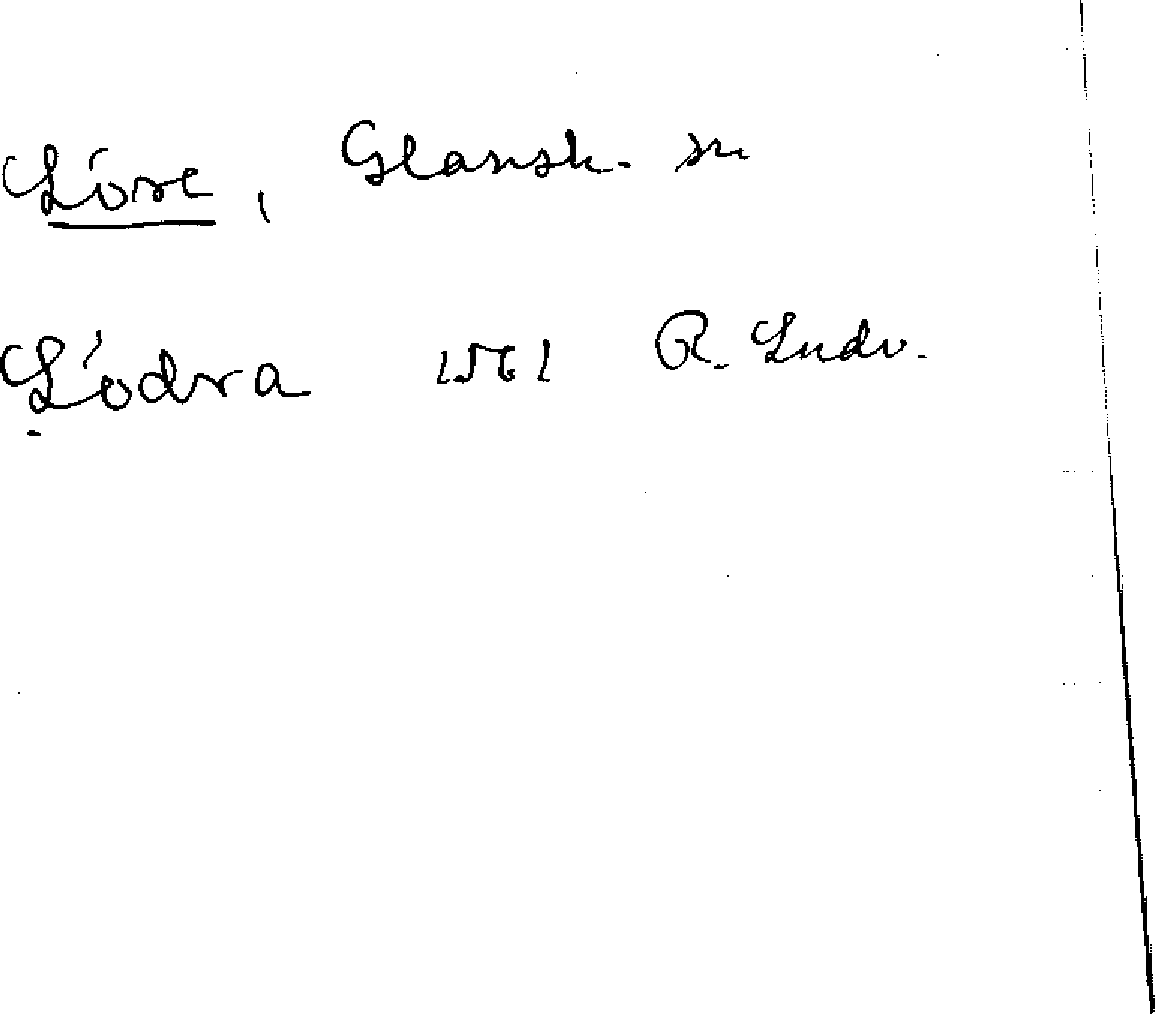 Lóre, Glansh. sn
Lódra 1561 R. Ludv.